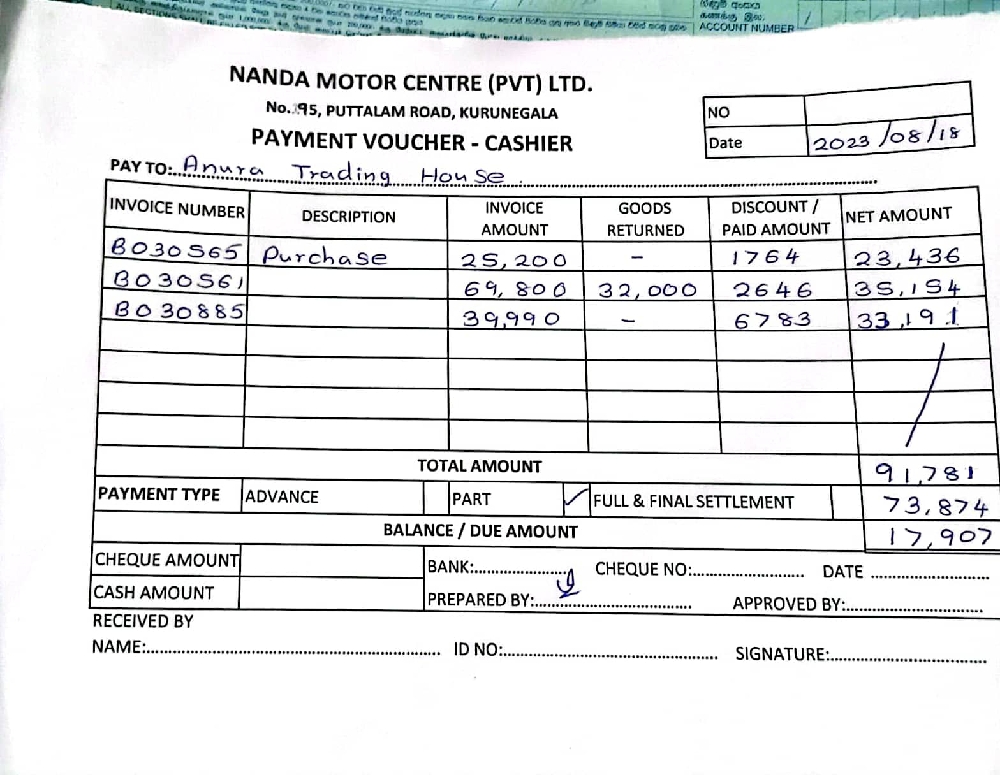 ගිණුම් අංකය
கணக்கு இல.
ACCOUNT NUMBER
NANDA MOTOR CENTRE (PVT) LTD.
No. 95, PUTTALAM ROAD, KURUNEGALA
PAYMENT VOUCHER - CASHIER
NO
Date 2023/08/18
PAY TO: Anura Trading House
INVOICE NUMBER DESCRIPTION INVOICE AMOUNT GOODS RETURNED DISCOUNT / PAID AMOUNT NET AMOUNT
B030565 Purchase 25,200 - 1764 23,436
B030561 69,800 32,000 2646 35,154
B030885 39,990 - 6783 33,191
TOTAL AMOUNT 91,781
PAYMENT TYPE ADVANCE PART ✓ FULL & FINAL SETTLEMENT 73,874
BALANCE / DUE AMOUNT 17,907
CHEQUE AMOUNT BANK: CHEQUE NO: DATE
CASH AMOUNT PREPARED BY: APPROVED BY:
RECEIVED BY
NAME: ID NO: SIGNATURE: